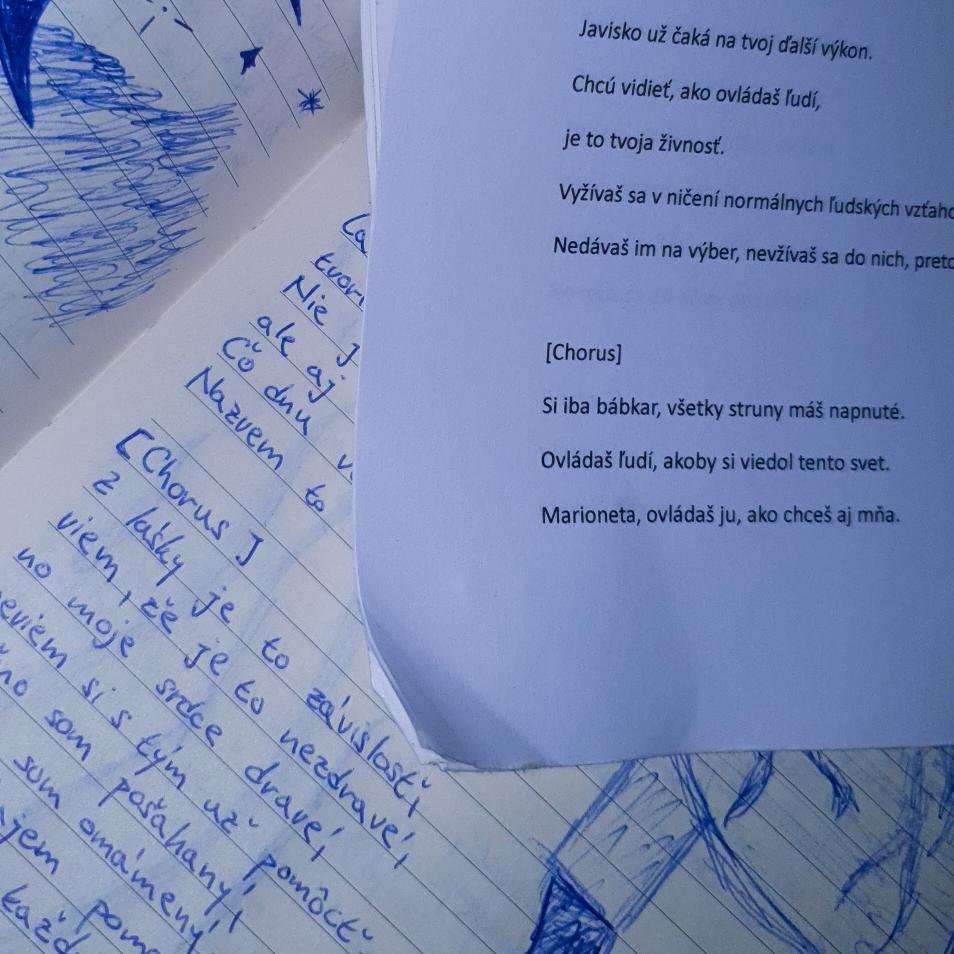 Javisko už čaká na tvoj ďalší výkon.
Chcú vidieť, ako ovládaš ľudí,
je to tvoja živnosť.
Vyžívaš sa v ničení normálnych ľudských vzťaho
Nedávaš im na výber, nevžívaš sa do nich, preto
[Chorus]
Si iba bábkar, všetky struny máš napnuté.
Ovládaš ľudí, akoby si viedol tento svet.
Marioneta, ovládaš ju, ako chceš aj mňa.
Nie
ale aj
Čo dnu
Nazvem to
[Chorus]
z lásky je to závislosť,
viem, že je to nezdravé,
no moje srdce dravé,
neviem si s tým už pomôcť
som pošahaný,
som omámený,